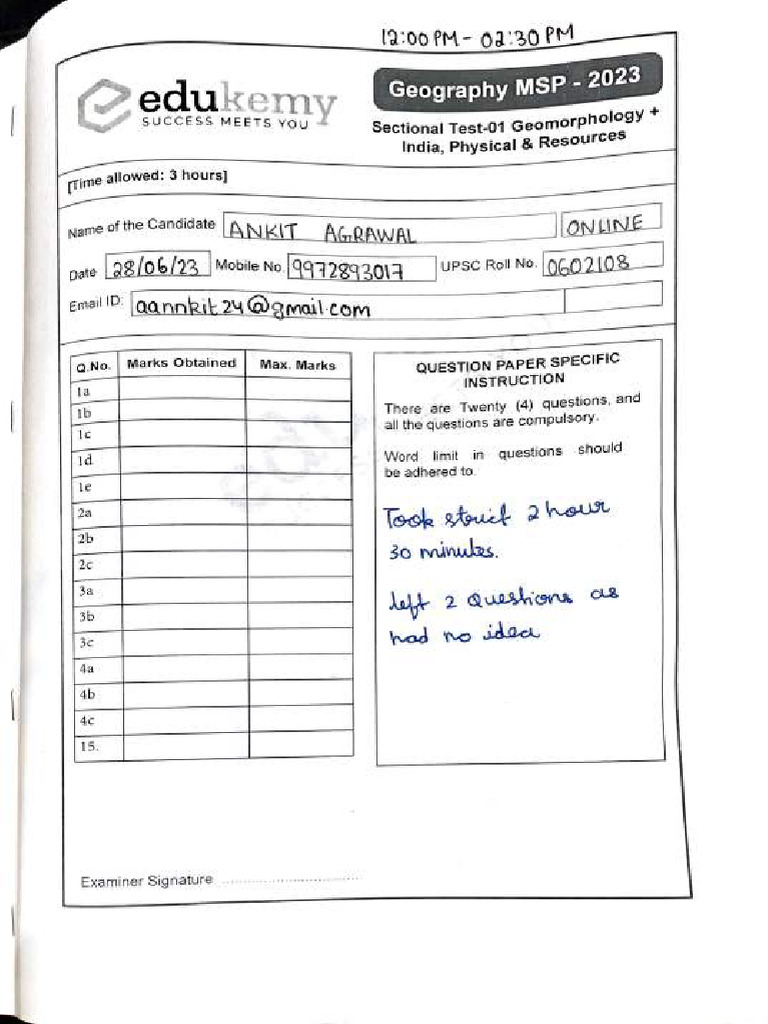 12:00 PM - 02:30 PM
edukemy
SUCCESS MEETS YOU
Geography MSP - 2023
Sectional Test-01 Geomorphology +
India, Physical & Resources
[Time allowed: 3 hours]
Name of the Candidate ANKIT AGRAWAL ONLINE
Date 28/06/23 Mobile No. 9972893017 UPSC Roll No. 0602108
Email ID: aannkit24@gmail.com
Q.No. Marks Obtained Max. Marks
1a
1b
1c
1d
1e
2a
2b
2c
3a
3b
3c
4a
4b
4c
15.
QUESTION PAPER SPECIFIC
INSTRUCTION
There are Twenty (4) questions, and
all the questions are compulsory.
Word limit in questions should
be adhered to.
Took strict 2 hour
30 minutes.
left 2 Questions as
had no idea
Examiner Signature